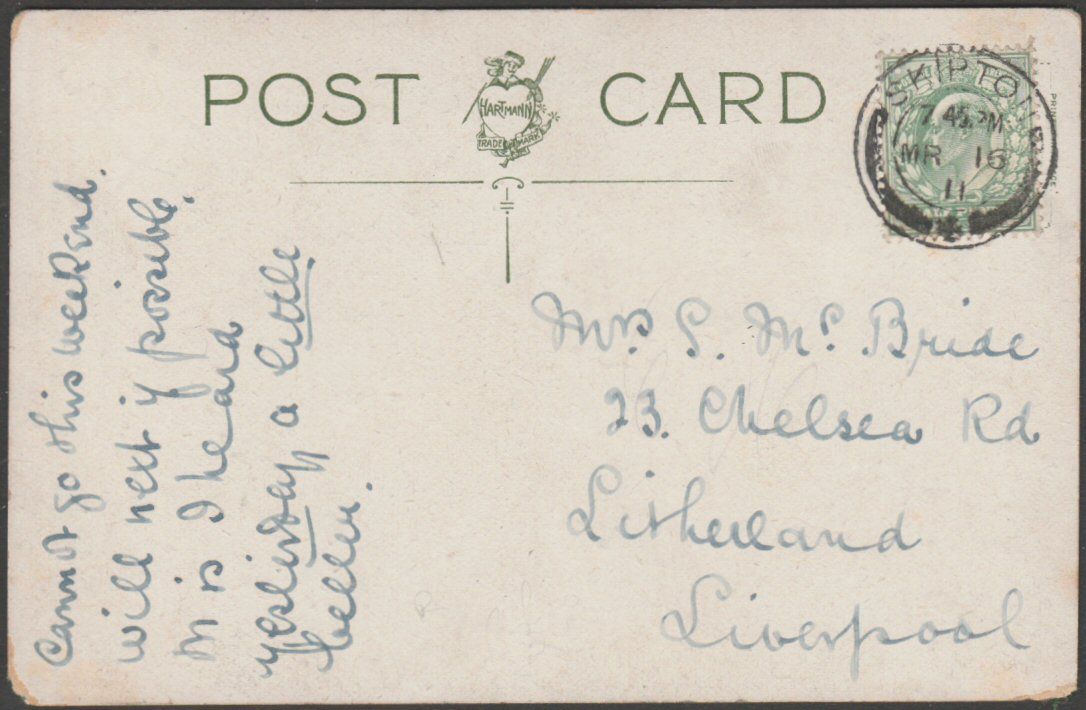 POST CARD
HARTMANN
TRADE MARK
SKIPTON
7.45 PM
MR 16
11
Cannot go this weekend.
will next if possible.
M is I heard
yesterday a little
better.
Mrs. S. Mc. Bride
23. Chelsea Rd
Litherland
Liverpool